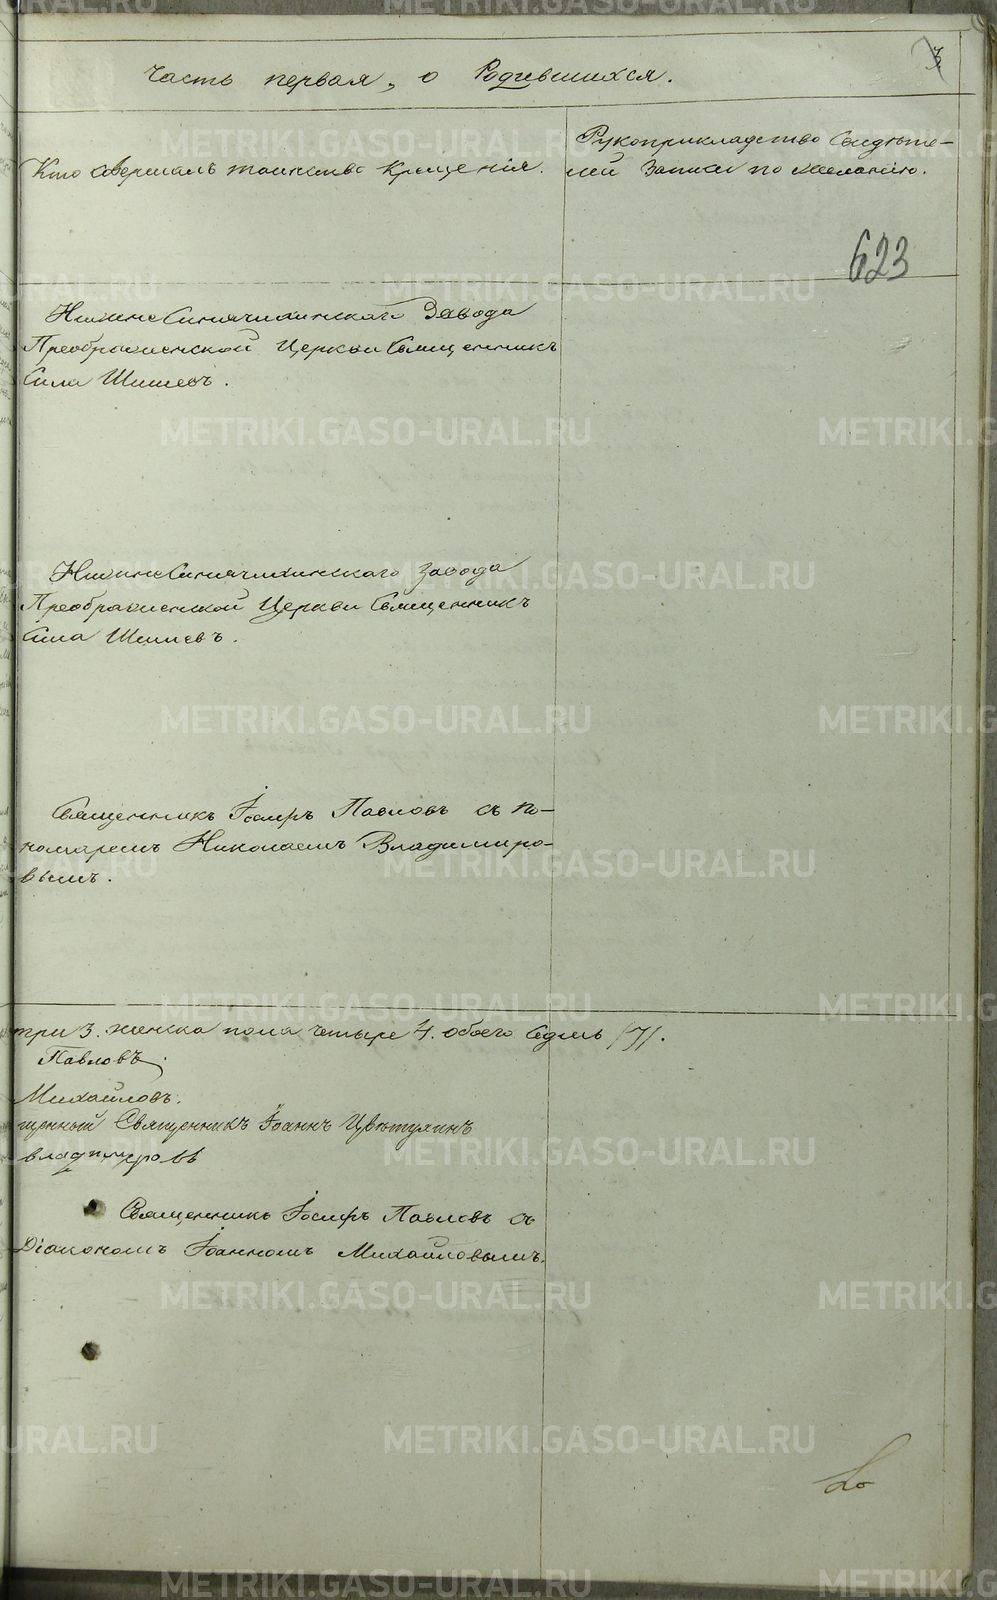 3.
Часть первая, о Родившихся.
Кто совершалъ таинство крещенія.
Рукоприкладство свидѣте-
лей записи по желанію.
623
Нижне Синячихинскаго Завода
Преображенской Церкви Священникъ
Сила Шишевъ.
Нижне Синячихинскаго завода
Преображенской Церкви Священникъ
Сила Шишевъ.
Священникъ Іосифъ Павловъ съ по-
номаремъ Николаемъ Владиміро-
вымъ.
три 3. женска пола четыре 4. обоего Седмь /7/.
Павловъ.
Михайловъ.
щенный Священникъ Іоаннъ Цвѣтухинъ
владимировъ
Священникъ Іосифъ Павловъ съ
Діакономъ Іоанномъ Михайловымъ.
METRIKI.GASO-URAL.RU